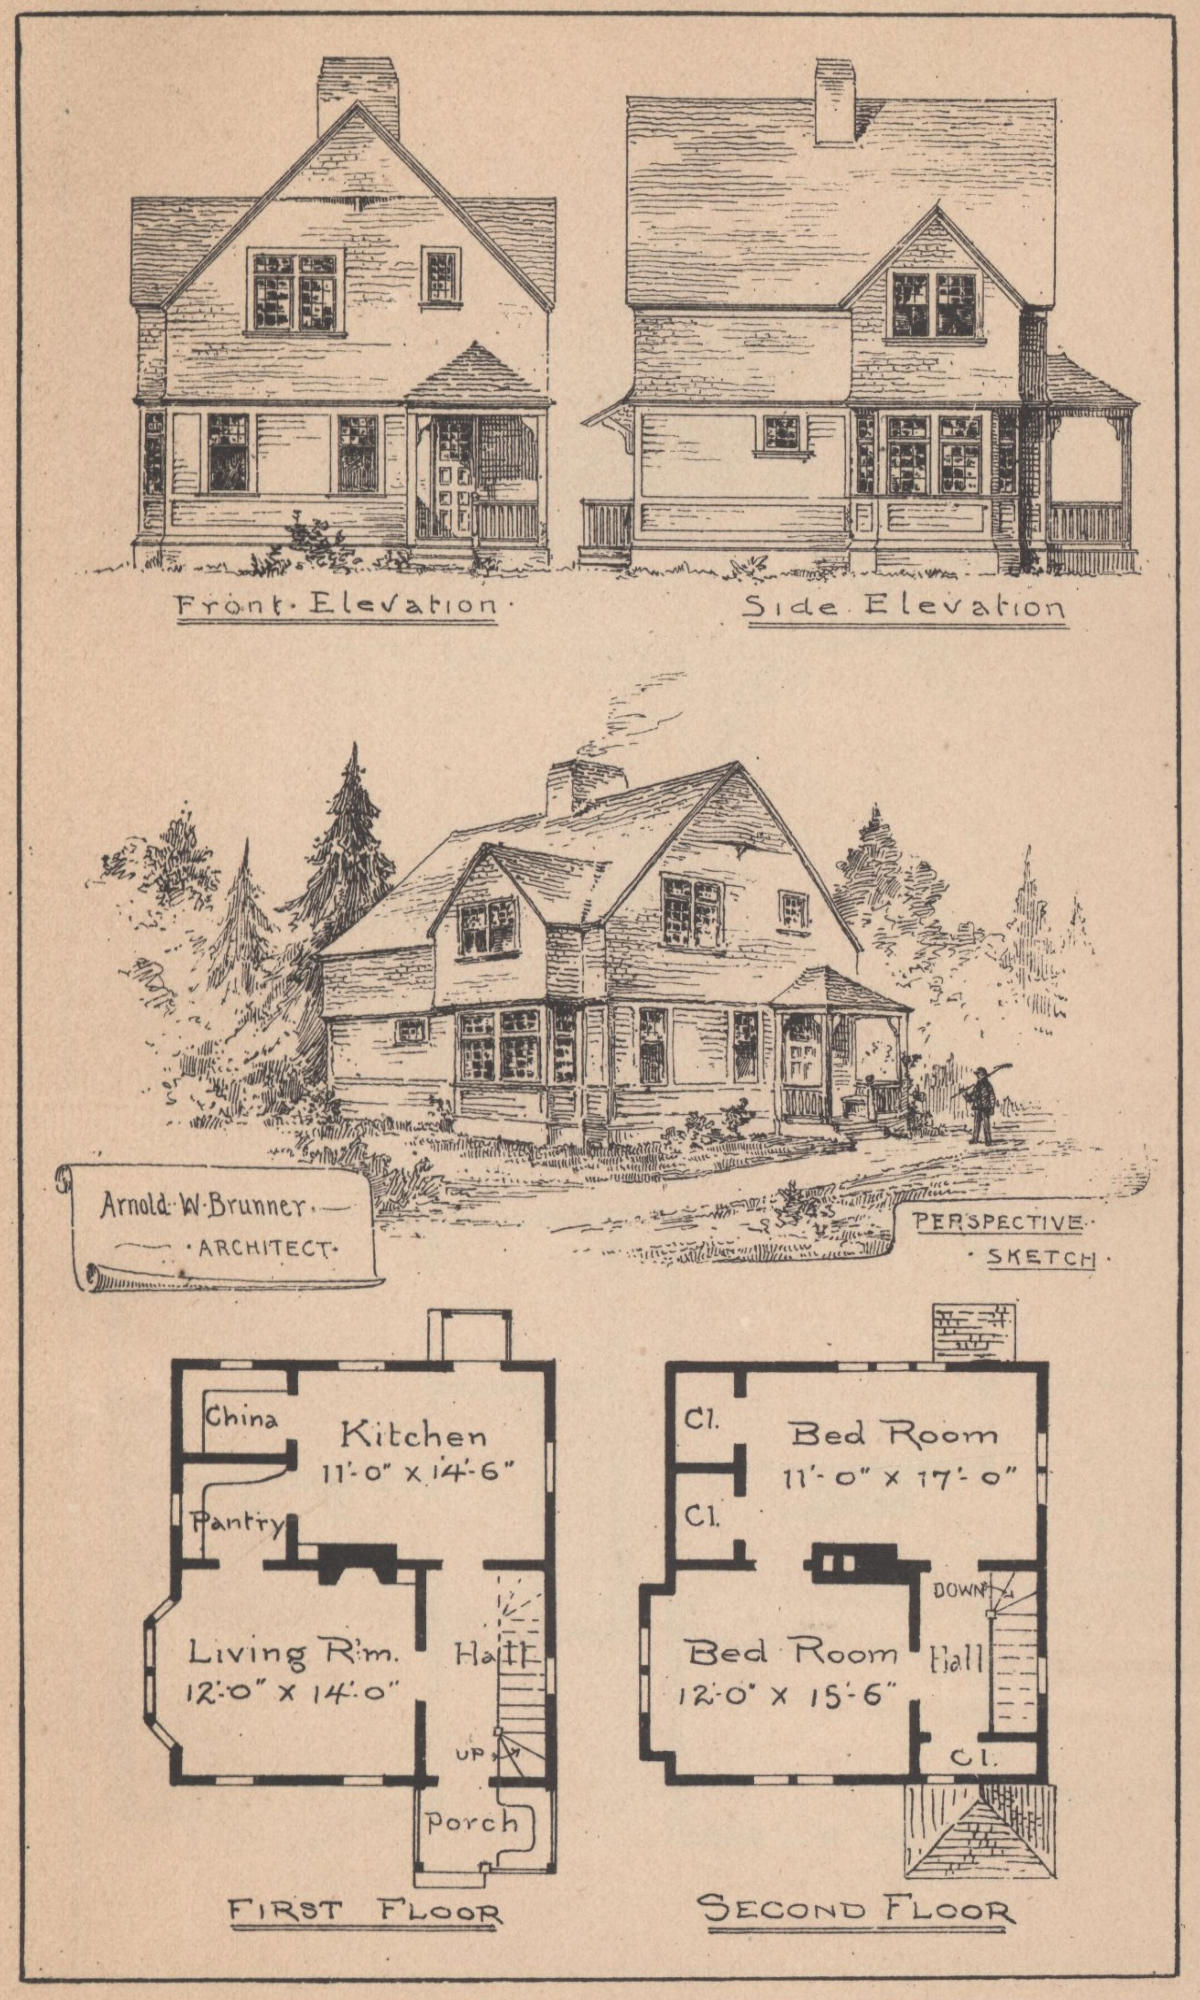 Front. Elevation.
Side Elevation
Arnold. W. Brunner.
ARCHITECT.
PERSPECTIVE.
SKETCH.
China
Kitchen
11'-0" x 14'-6"
Pantry
Living R'm.
12'-0" x 14'-0"
Hall
UP
Porch
FIRST FLOOR
Cl.
Bed Room
11'-0" x 17'-0"
Cl.
DOWN
Bed Room
12'-0" x 15'-6"
Hall
Cl.
SECOND FLOOR